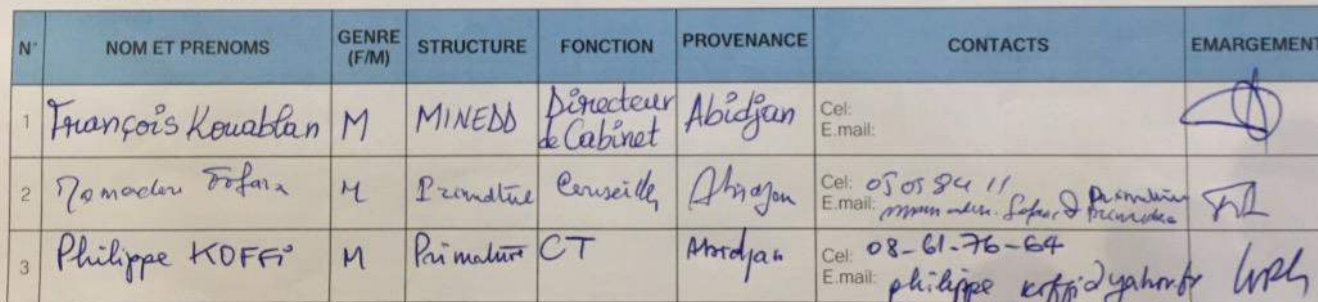 N° NOM ET PRENOMS GENRE (F/M) STRUCTURE FONCTION PROVENANCE CONTACTS EMARGEMENT
1 François Kouablan M MINEDD Directeur de Cabinet Abidjan Cel:
E.mail:
2 Mamadou Fofana M Primature Conseiller Abidjan Cel: 05 05 84 11
E.mail:
3 Philippe KOFFI M Primature CT Abidjan Cel: 08-61-76-64
E.mail: philippe koffi@yahoo.fr